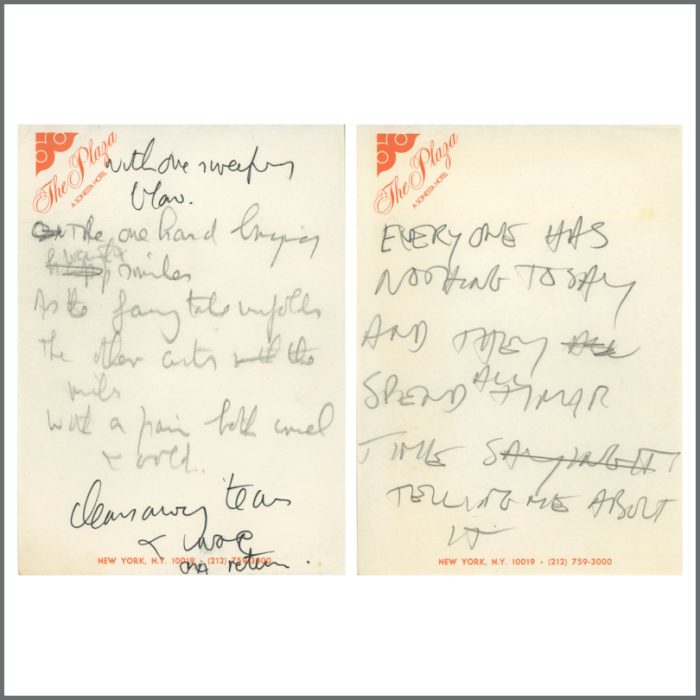 The Plaza
A SONESTA HOTEL
with one sweeping
blow.
On The one hand bringing
smiles
As the fairy tale unfolds
The other cuts with the
With a pain both cruel
& cold.
clears away tears
& woe
on return.
NEW YORK, N.Y. 10019 • (212) 759-3000
The Plaza
A SONESTA HOTEL
EVERYONE HAS
NOTHING TO SAY
AND THEY
ALL
SPEND THEIR
TIME SAYING IT
TELLING ME ABOUT
IT
NEW YORK, N.Y. 10019 • (212) 759-3000